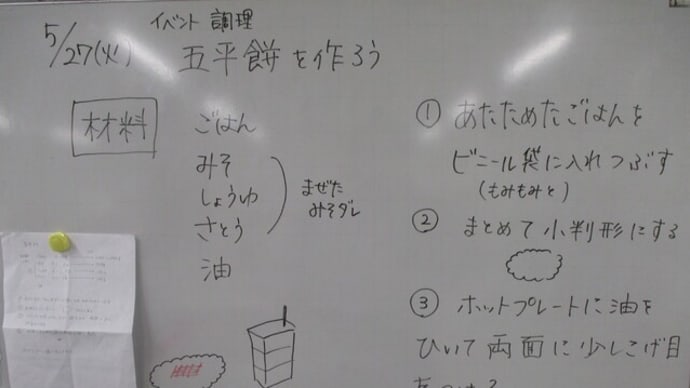 5/27(火)
イベント 調理
五平餅を作ろう
材料
ごはん
みそ
しょうゆ
さとう
まぜた
みそダレ
油
① あたためたごはんを
ビニール袋に入れつぶす
(もみもみと)
② まとめて小判形にする
③ ホットプレートに油を
ひいて両面に少しこげ目